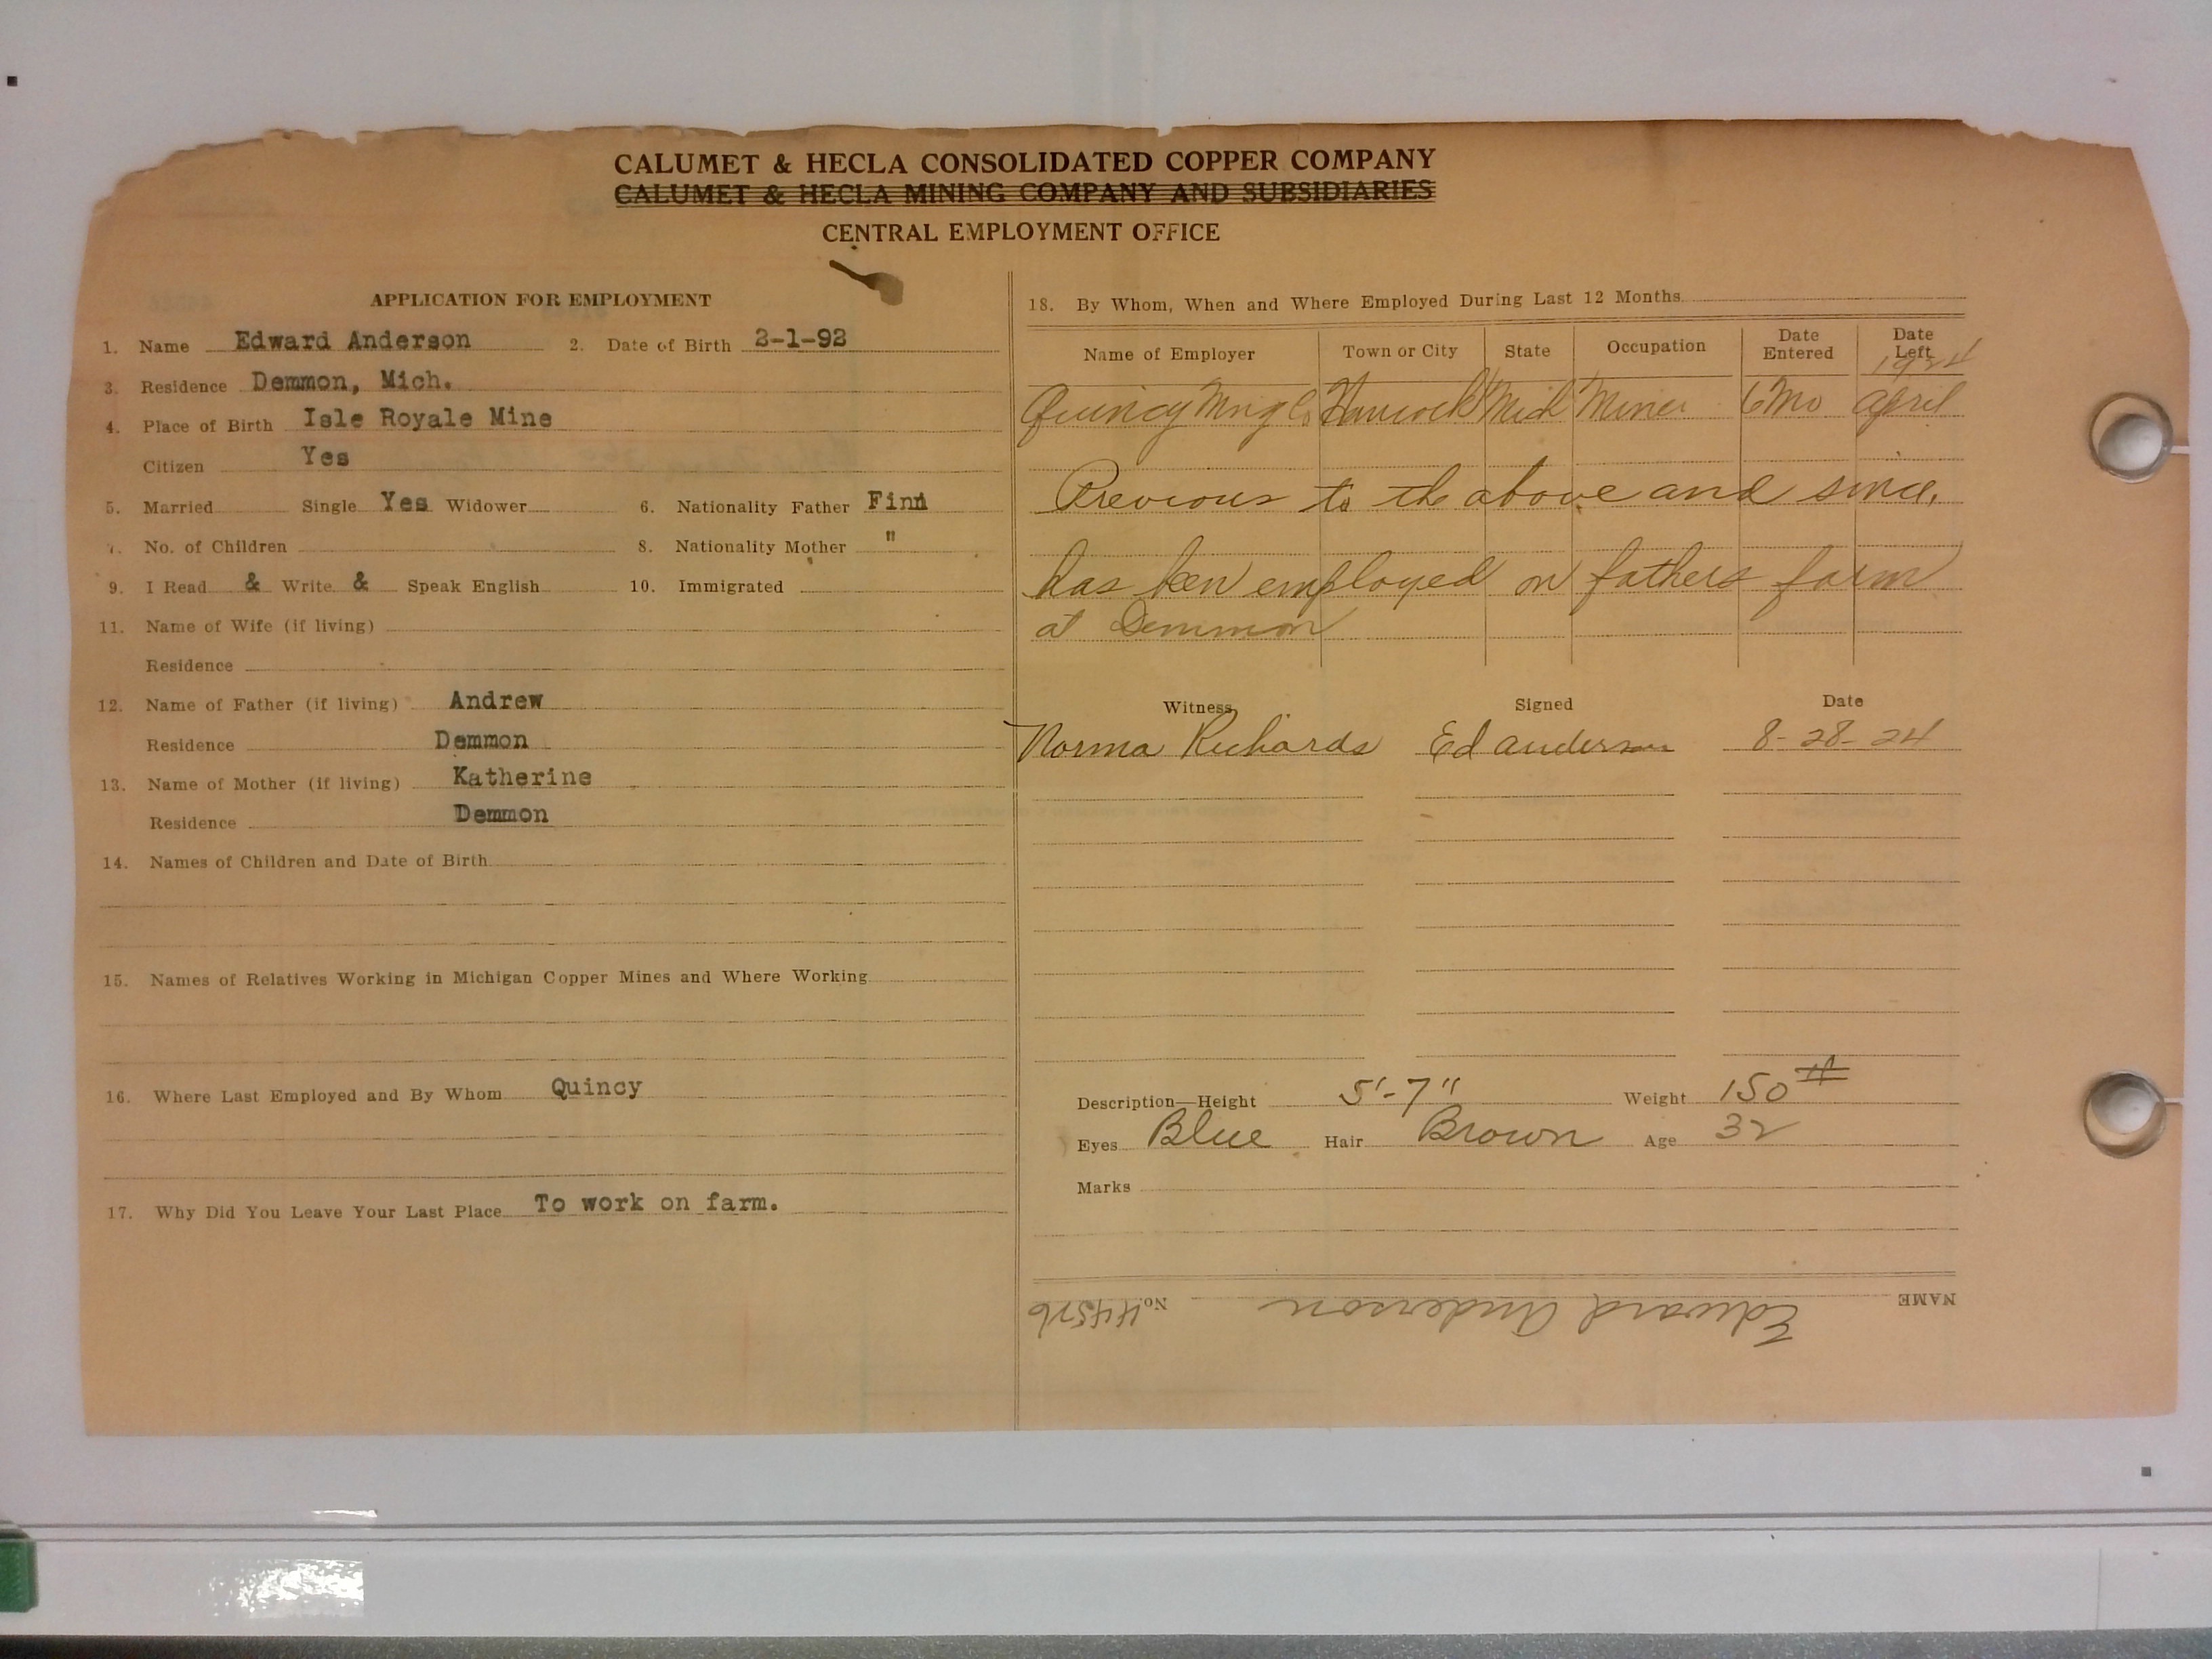 CALUMET & HECLA CONSOLIDATED COPPER COMPANY
CALUMET & HECLA MINING COMPANY AND SUBSIDIARIES
CENTRAL EMPLOYMENT OFFICE
APPLICATION FOR EMPLOYMENT
1. Name Edward Anderson 2. Date of Birth 2-1-92
3. Residence Demmon, Mich.
4. Place of Birth Isle Royale Mine
Citizen Yes
5. Married Single Yes Widower 6. Nationality Father Finn
7. No. of Children 8. Nationality Mother "
9. I Read & Write & Speak English 10. Immigrated
11. Name of Wife (if living)
Residence
12. Name of Father (if living) Andrew
Residence Demmon
13. Name of Mother (if living) Katherine
Residence Demmon
14. Names of Children and Date of Birth
15. Names of Relatives Working in Michigan Copper Mines and Where Working
16. Where Last Employed and By Whom Quincy
17. Why Did You Leave Your Last Place To work on farm.
18. By Whom, When and Where Employed During Last 12 Months
Name of Employer Town or City State Occupation Date Entered Date Left
1924
Quincy Mng Co Hancock Mich Miner 6 Mo April
Previous to the above and since,
has been employed on fathers farm
at Demmon
Witness Signed Date
Norma Richards Ed Anderson 8-28-24
Description—Height 5'-7" Weight 150#
Eyes Blue Hair Brown Age 32
Marks
NAME Edward Anderson No. 44576